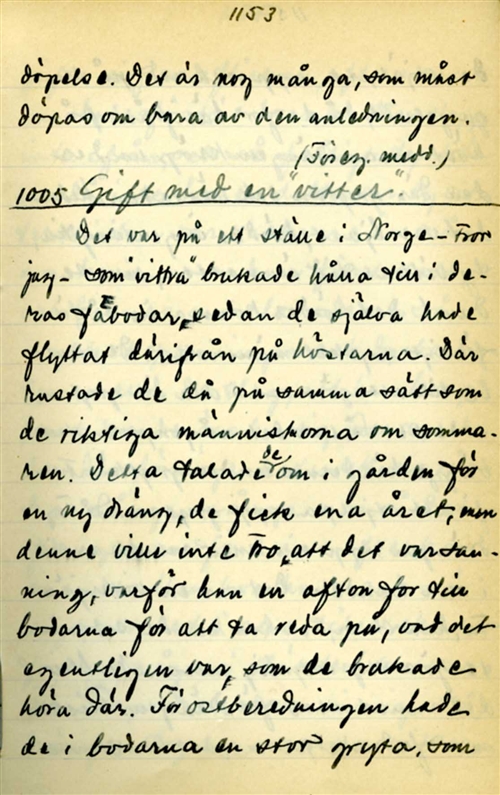 1153
döpelse. Det är nog många, som måst
döpas om bara av den anledningen.
(Föreg. medd.)
1005 Gift med en "vitter".
Det var på ett ställe i Norge - tror
jag - som "vittra" brukade hålla till i de-
ras fäbodar, sedan de själva hade
flyttat därifrån på höstarna. Där
rustade de då på samma sätt som
de riktiga människorna om somma-
ren. Detta talade de om i gården för
en ny dräng, de fick ena året, men
denne ville inte tro, att det var san-
ning, varför han en afton for till
bodarna för att ta reda på, vad det
egentligen var, som de brukade
höra där. För ostberedningen hade
de i bodarna en stor gryta, som